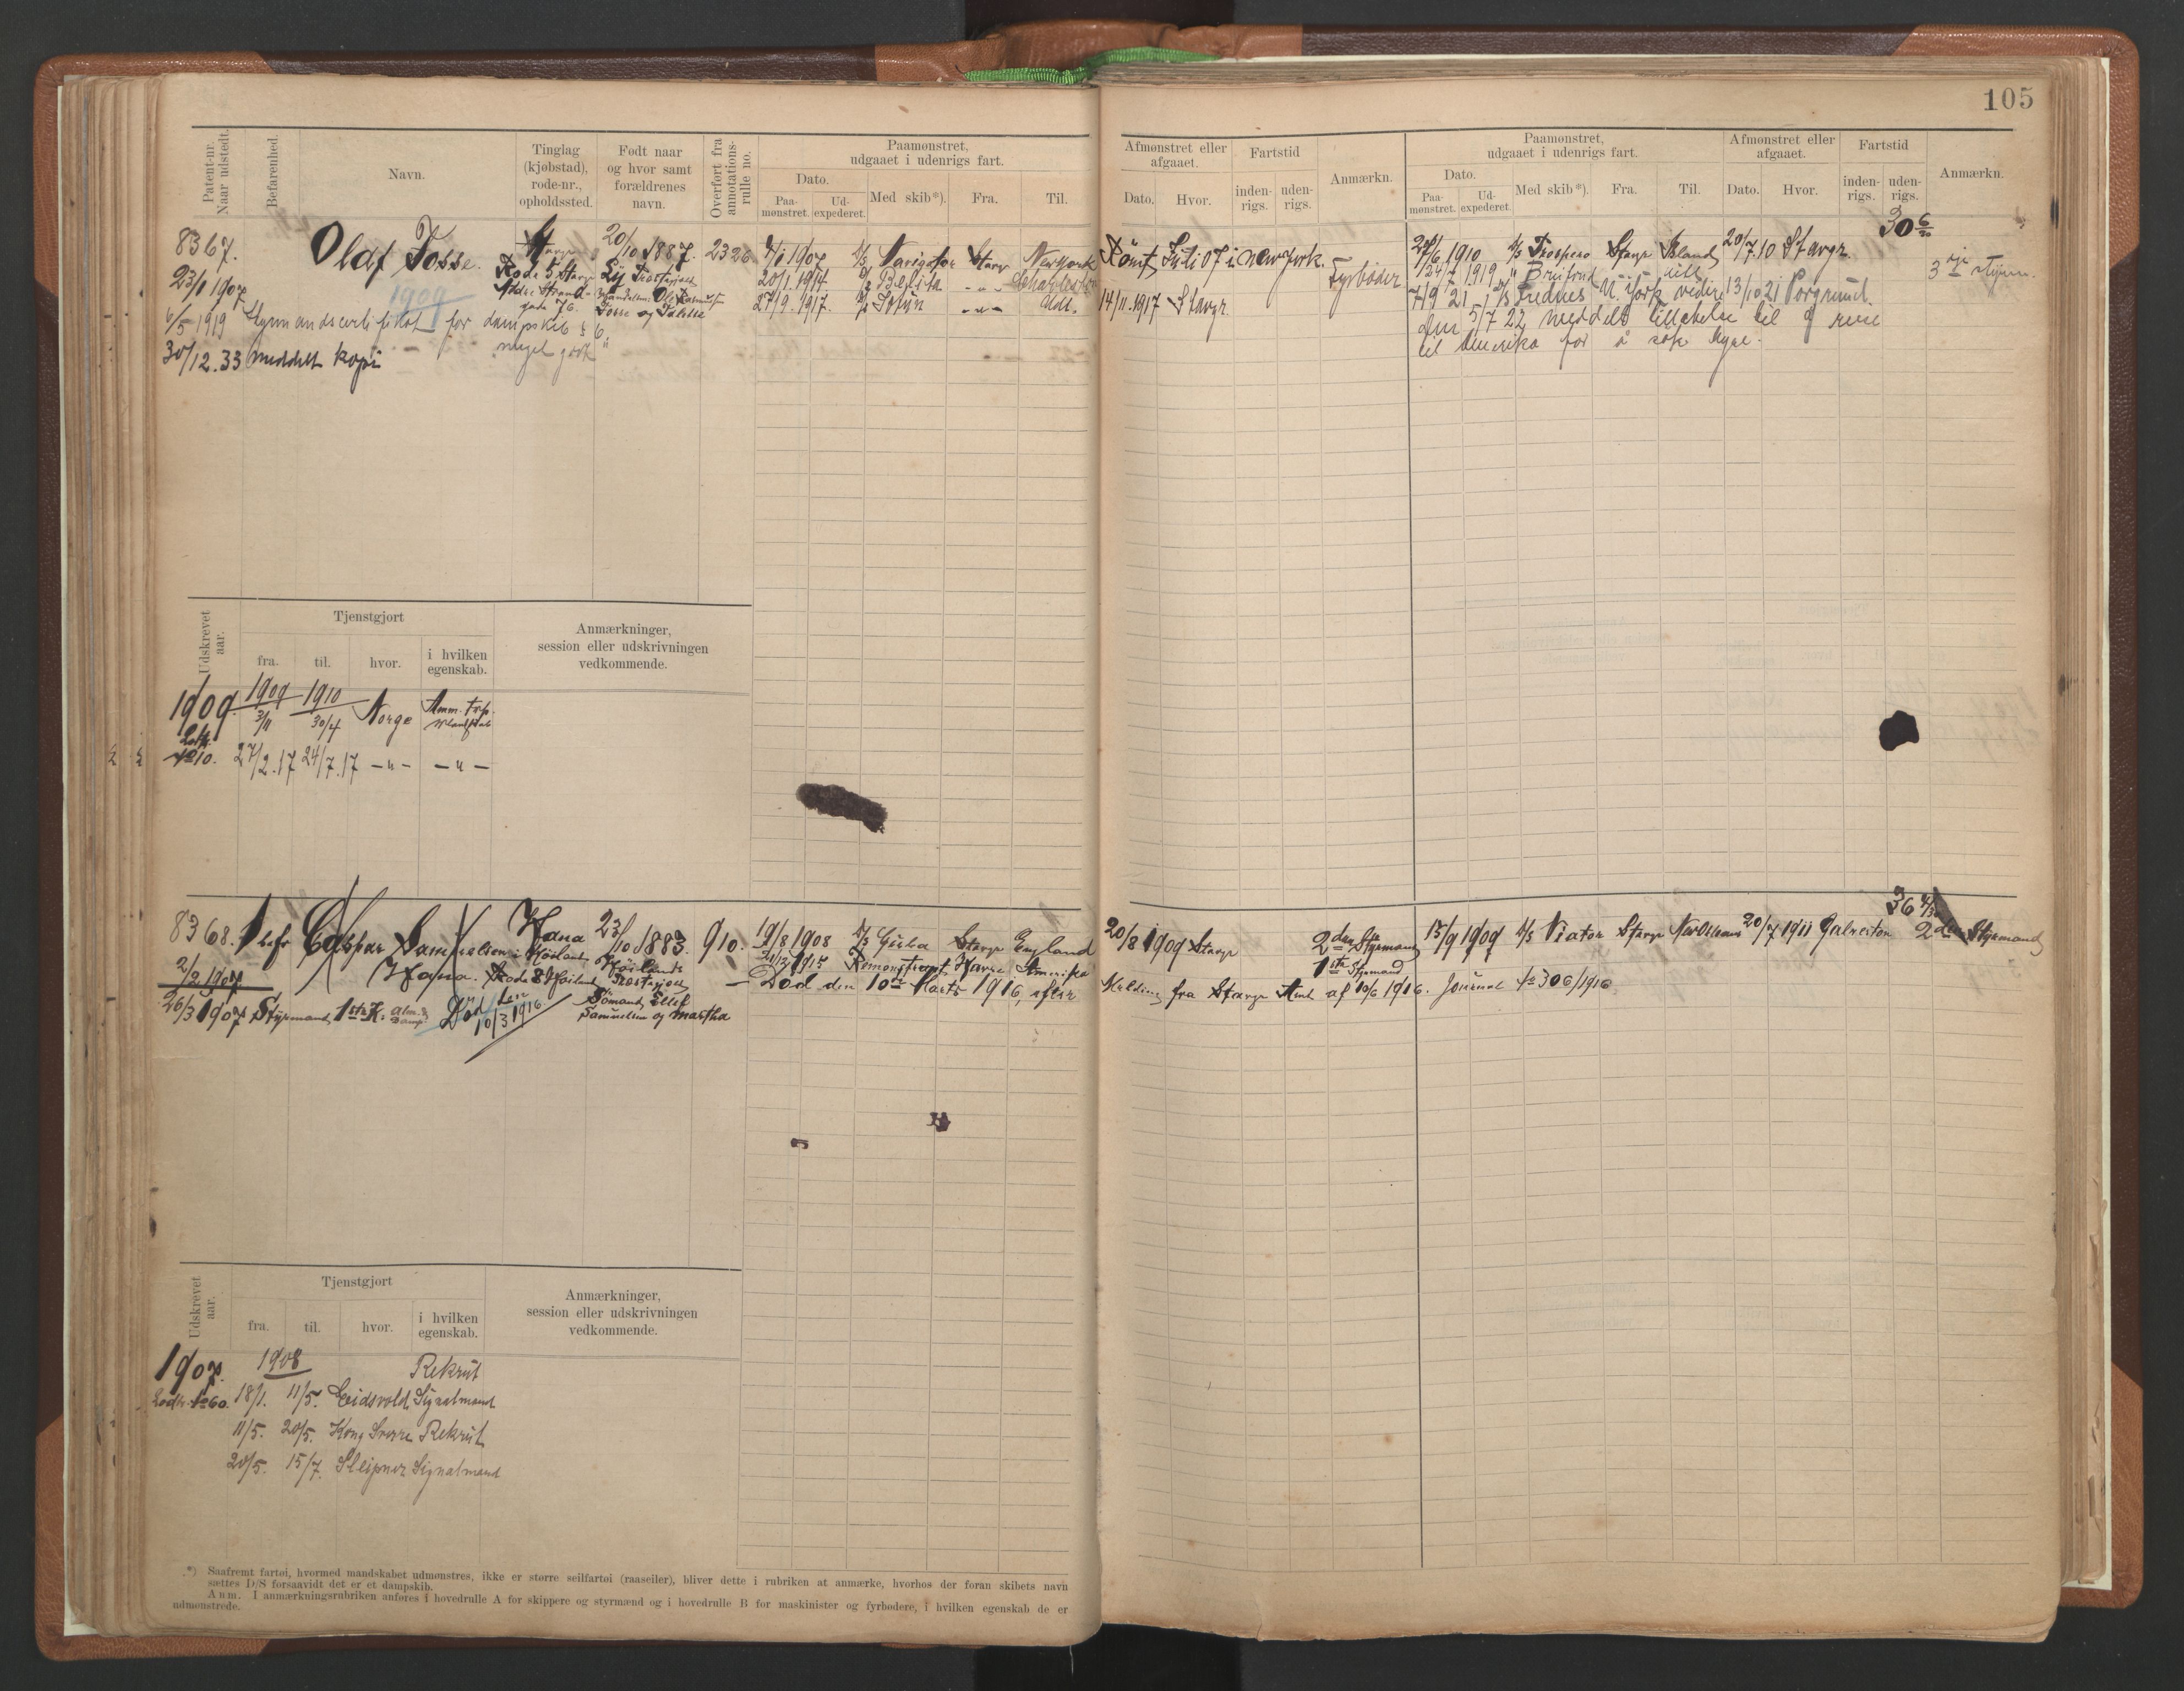 105
Patent-nr. Naar udstedt.
Befarenhed.
Navn.
Tinglag (kjøbstad), rode-nr., opholdssted.
Født naar og hvor samt forældrenes navn.
Overført fra annotations-rulle no.
Paamønstret, udgaaet i udenrigs fart.
Dato.
Paa-mønstret.
Ud-expederet.
Med skib*).
Fra.
Til.
Afmønstret eller afgaaet.
Dato.
Hvor.
Fartstid
inden-rigs.
uden-rigs.
Anmærkn.
Paamønstret, udgaaet i udenrigs fart.
Dato.
Paa-mønstret.
Ud-expederet.
Med skib*).
Fra.
Til.
Afmønstret eller afgaaet.
Dato.
Hvor.
Fartstid
inden-rigs.
uden-rigs.
Anmærkn.
8367.
23/1 1907
Olaf Fosse.
Rode 5 Stavgr
1909
20/10 1887.
Fosse og
2326
D/S Navigator Stavgr New York
20/1. 1917. D/S Belita - " -
27/9. 1917. - " -
Rømt Juli 07 i New York.
Fyrbøder
14/11. 1917 Stavgr.
6/5 1919 Styrmandscertifikat for dampskib
meget godt
30/12.33 meddelt kopi
/6 1910 D/S Prospero Stavgr Island 20/7.10 Stavgr.
30 6/30
3die styrm.
24/7 1919
7/9 21 D/S N. York videre 13/10 21 Porsgrund.
den 5/7 22 meddelt tilladelse til å reise
til Amerika for å søke hyre.
Udskrevet aar.
Tjenstgjort
fra.
til.
hvor.
i hvilken egenskab.
Anmærkninger, session eller udskrivningen vedkommende.
1909. 1909 1910
3/11 30/4 Norge
No 10. 27/2.17 24/7.17 - " - - " -
8368. 1 bef Caspar Samuelsen Høiland
2/2 1907
Hana. Rode 8 Høiland
26/3 1907 Styrmand 1ste K.
Død den 10/3 1916
Hana 23/10 1883. 910.
Høilands Præstegjæld
Sømand Ellef
Samuelsen og Martha
19/8 1908 D/S Gisla Stavgr England
20/8 1909 Stavgr
2den Styrmand
1915 Amerika
1ste Styrmand
- Død den 10de Marts 1916, efter
Melding fra Stavgr Amt af 10/6 1916. Journal No 306/1916
15/9 1909 D/S Viator Stavgr New Orleans 20/7 1911 Galveston
36
2den Styrmand
Udskrevet aar.
Tjenstgjort
fra.
til.
hvor.
i hvilken egenskab.
Anmærkninger, session eller udskrivningen vedkommende.
1907. 1908 Rekrut
Lodtr. No 60. 18/1. 11/5. Eidsvold Signalmand
11/5. 20/5. Kong Sverre Rekrut
20/5. 15/7. Sleipner Signalmand
*) Saafremt fartøi, hvormed mandskabet udmønstres, ikke er større seilfartøi (raaseiler), bliver dette i rubriken at anmærke, hvorhos der foran skibets navn
sættes D/S forsaavidt det er et dampskib.
Anm. I anmærkningsrubriken anføres i hovedrulle A for skippere og styrmænd og i hovedrulle B for maskinister og fyrbødere, i hvilken egenskab de er
udmønstrede.